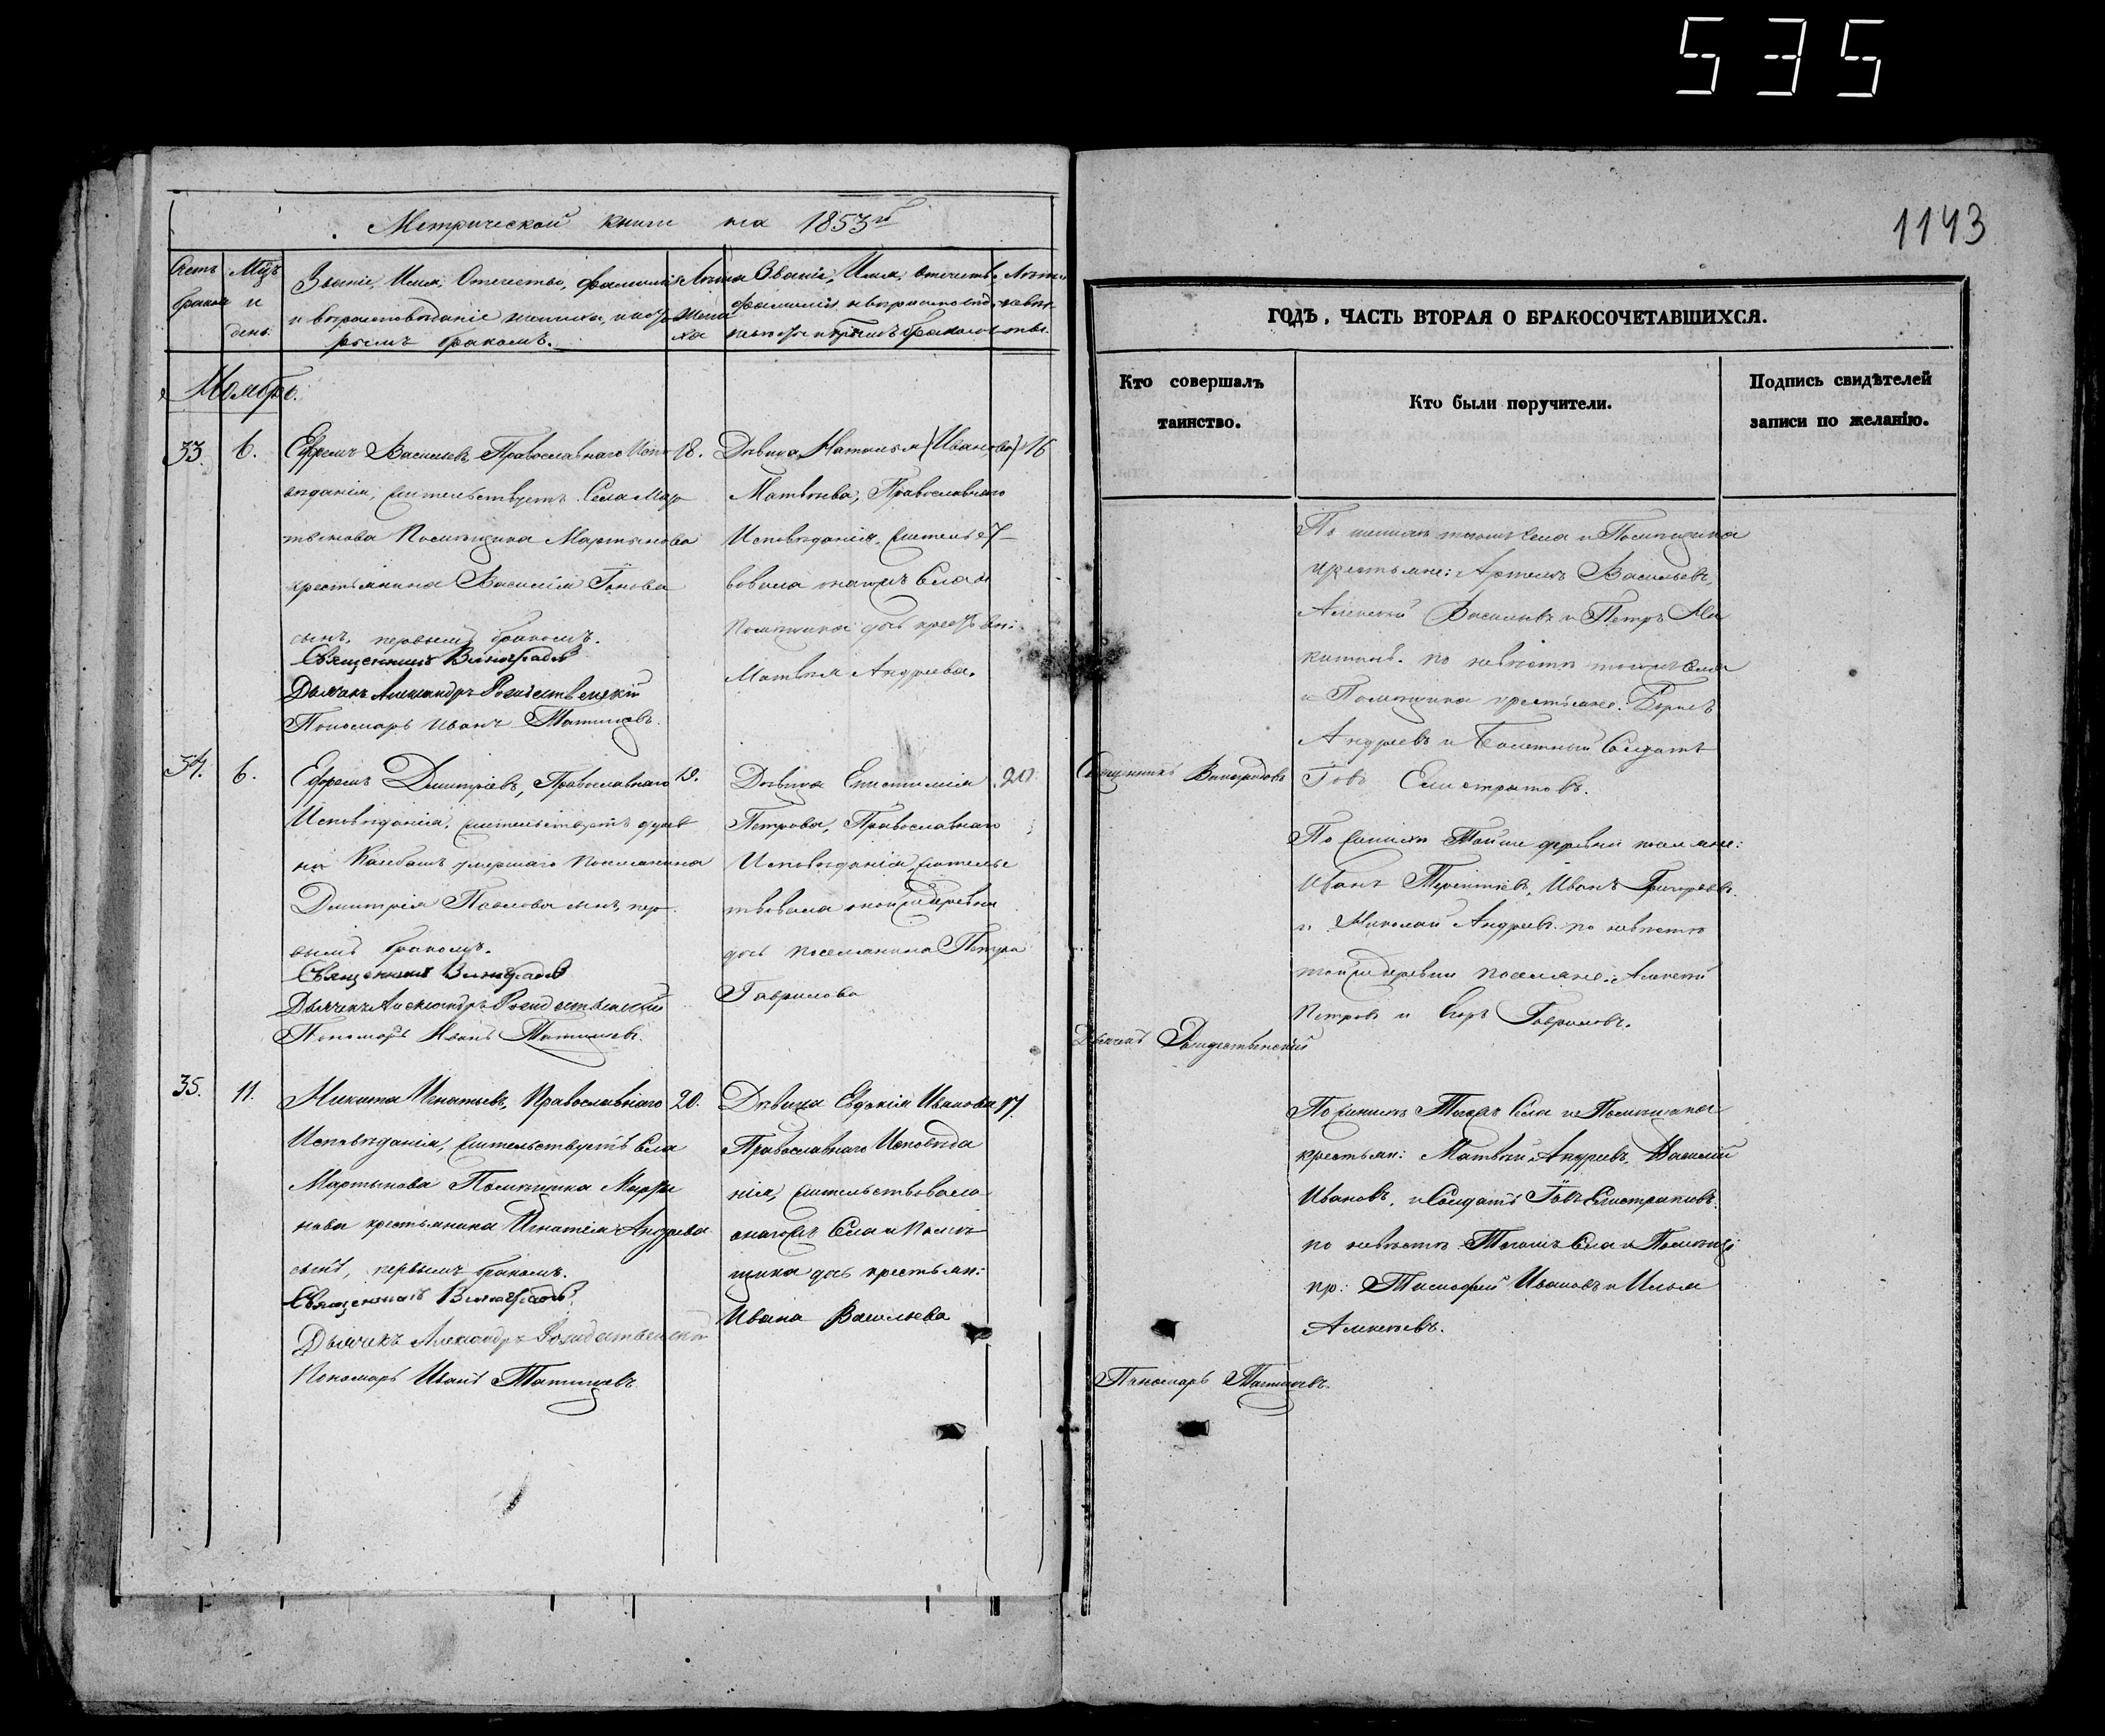 535
1143
Метрической книги на 1853й
Счетъ браковъ
Мцъ и день
Званіе, Имя, Отечество, фамилія
и вѣроисповѣданіе жениха, и кото
рымъ бракомъ.
Лѣта
жени
ха
Званіе, Имя, отечество,
фамилія
Лѣта
невѣс
ты.
Ноябрь.
33.
6.
Ефремъ Васильевъ, Православнаго Испо
вѣданія, жительствуетъ Села Мар
тынова Помѣщика Мартынова
крестьянина Василія Іовова
сынъ, первымъ бракомъ.
Священникъ Виноградовъ
Дьячекъ Александръ Рождественскій
Пономарь Иванъ
18.
Дѣвица Наталья (Иванова)
Матвѣева, Православнаго
Исповѣданія, жительст
вовала
Помѣщика дочь крестьяни:
Матвѣя Андреева.
16
34.
6.
Ефремъ Дмитріевъ, Православнаго
Исповѣданія, жительствуетъ дерев
ни умершаго поселянина
Дмитрія Павлова сынъ, пер
вымъ бракомъ.
Священникъ Виноградовъ
Дьячекъ Александръ Рождественскій
Пономарь Иванъ
19.
Дѣвица Епистимія
Петрова, Православнаго
Исповѣданія жительс
твовала оной же деревни
дочь поселянина Петра
Гаврилова
20.
35.
11.
Никита Игнатьевъ, Православнаго
Исповѣданія, жительствуетъ Села
Мартынова Помѣщика Марты
нова крестьянина Игнатія Андреева
сынъ, первымъ бракомъ.
Священникъ Виноградовъ
Дьячекъ Александръ Рождественскій
Пономарь Иванъ
20.
Дѣвица Евдокія Иванова
Православнаго Исповѣда
нія, жительствовала
онагожъ Села и Помѣ
щика дочь крестьяни:
Ивана Васильева
17.
ГОДЪ, ЧАСТЬ ВТОРАЯ О БРАКОСОЧЕТАВШИХСЯ.
Кто совершалъ
таинство.
Кто были поручители.
Подпись свидѣтелей
записи по желанію.
Священникъ Виноградовъ
Дьячекъ Рождественскій
Пономарь
По женихѣ тогожъ Села и Помѣщика
крестьяне: Артемъ Васильевъ,
Алексѣй Васильевъ и Петръ Ни
китинъ. по невѣстѣ тогожъ Села
и Помѣщика крестьяне: Борисъ
Андреевъ и Билетный Солдатъ
Іовъ Елистратовъ.
По женихѣ Той же деревни поселяне:
Иванъ Терентьевъ, Иванъ Григорьевъ
и Николай Андреевъ. по невѣстѣ
той же деревни поселяне: Алексѣй
Петровъ и Егоръ Гавриловъ.
По женихѣ Тогожъ Села и Помѣщика
крестьян: Матвѣй Андреевъ, Василій
Ивановъ, и Солдатъ Іовъ Елистратовъ.
по невѣстѣ Тогожъ Села и Помѣщ:
кр: Тимофей Ивановъ и Илья
Алексѣевъ.